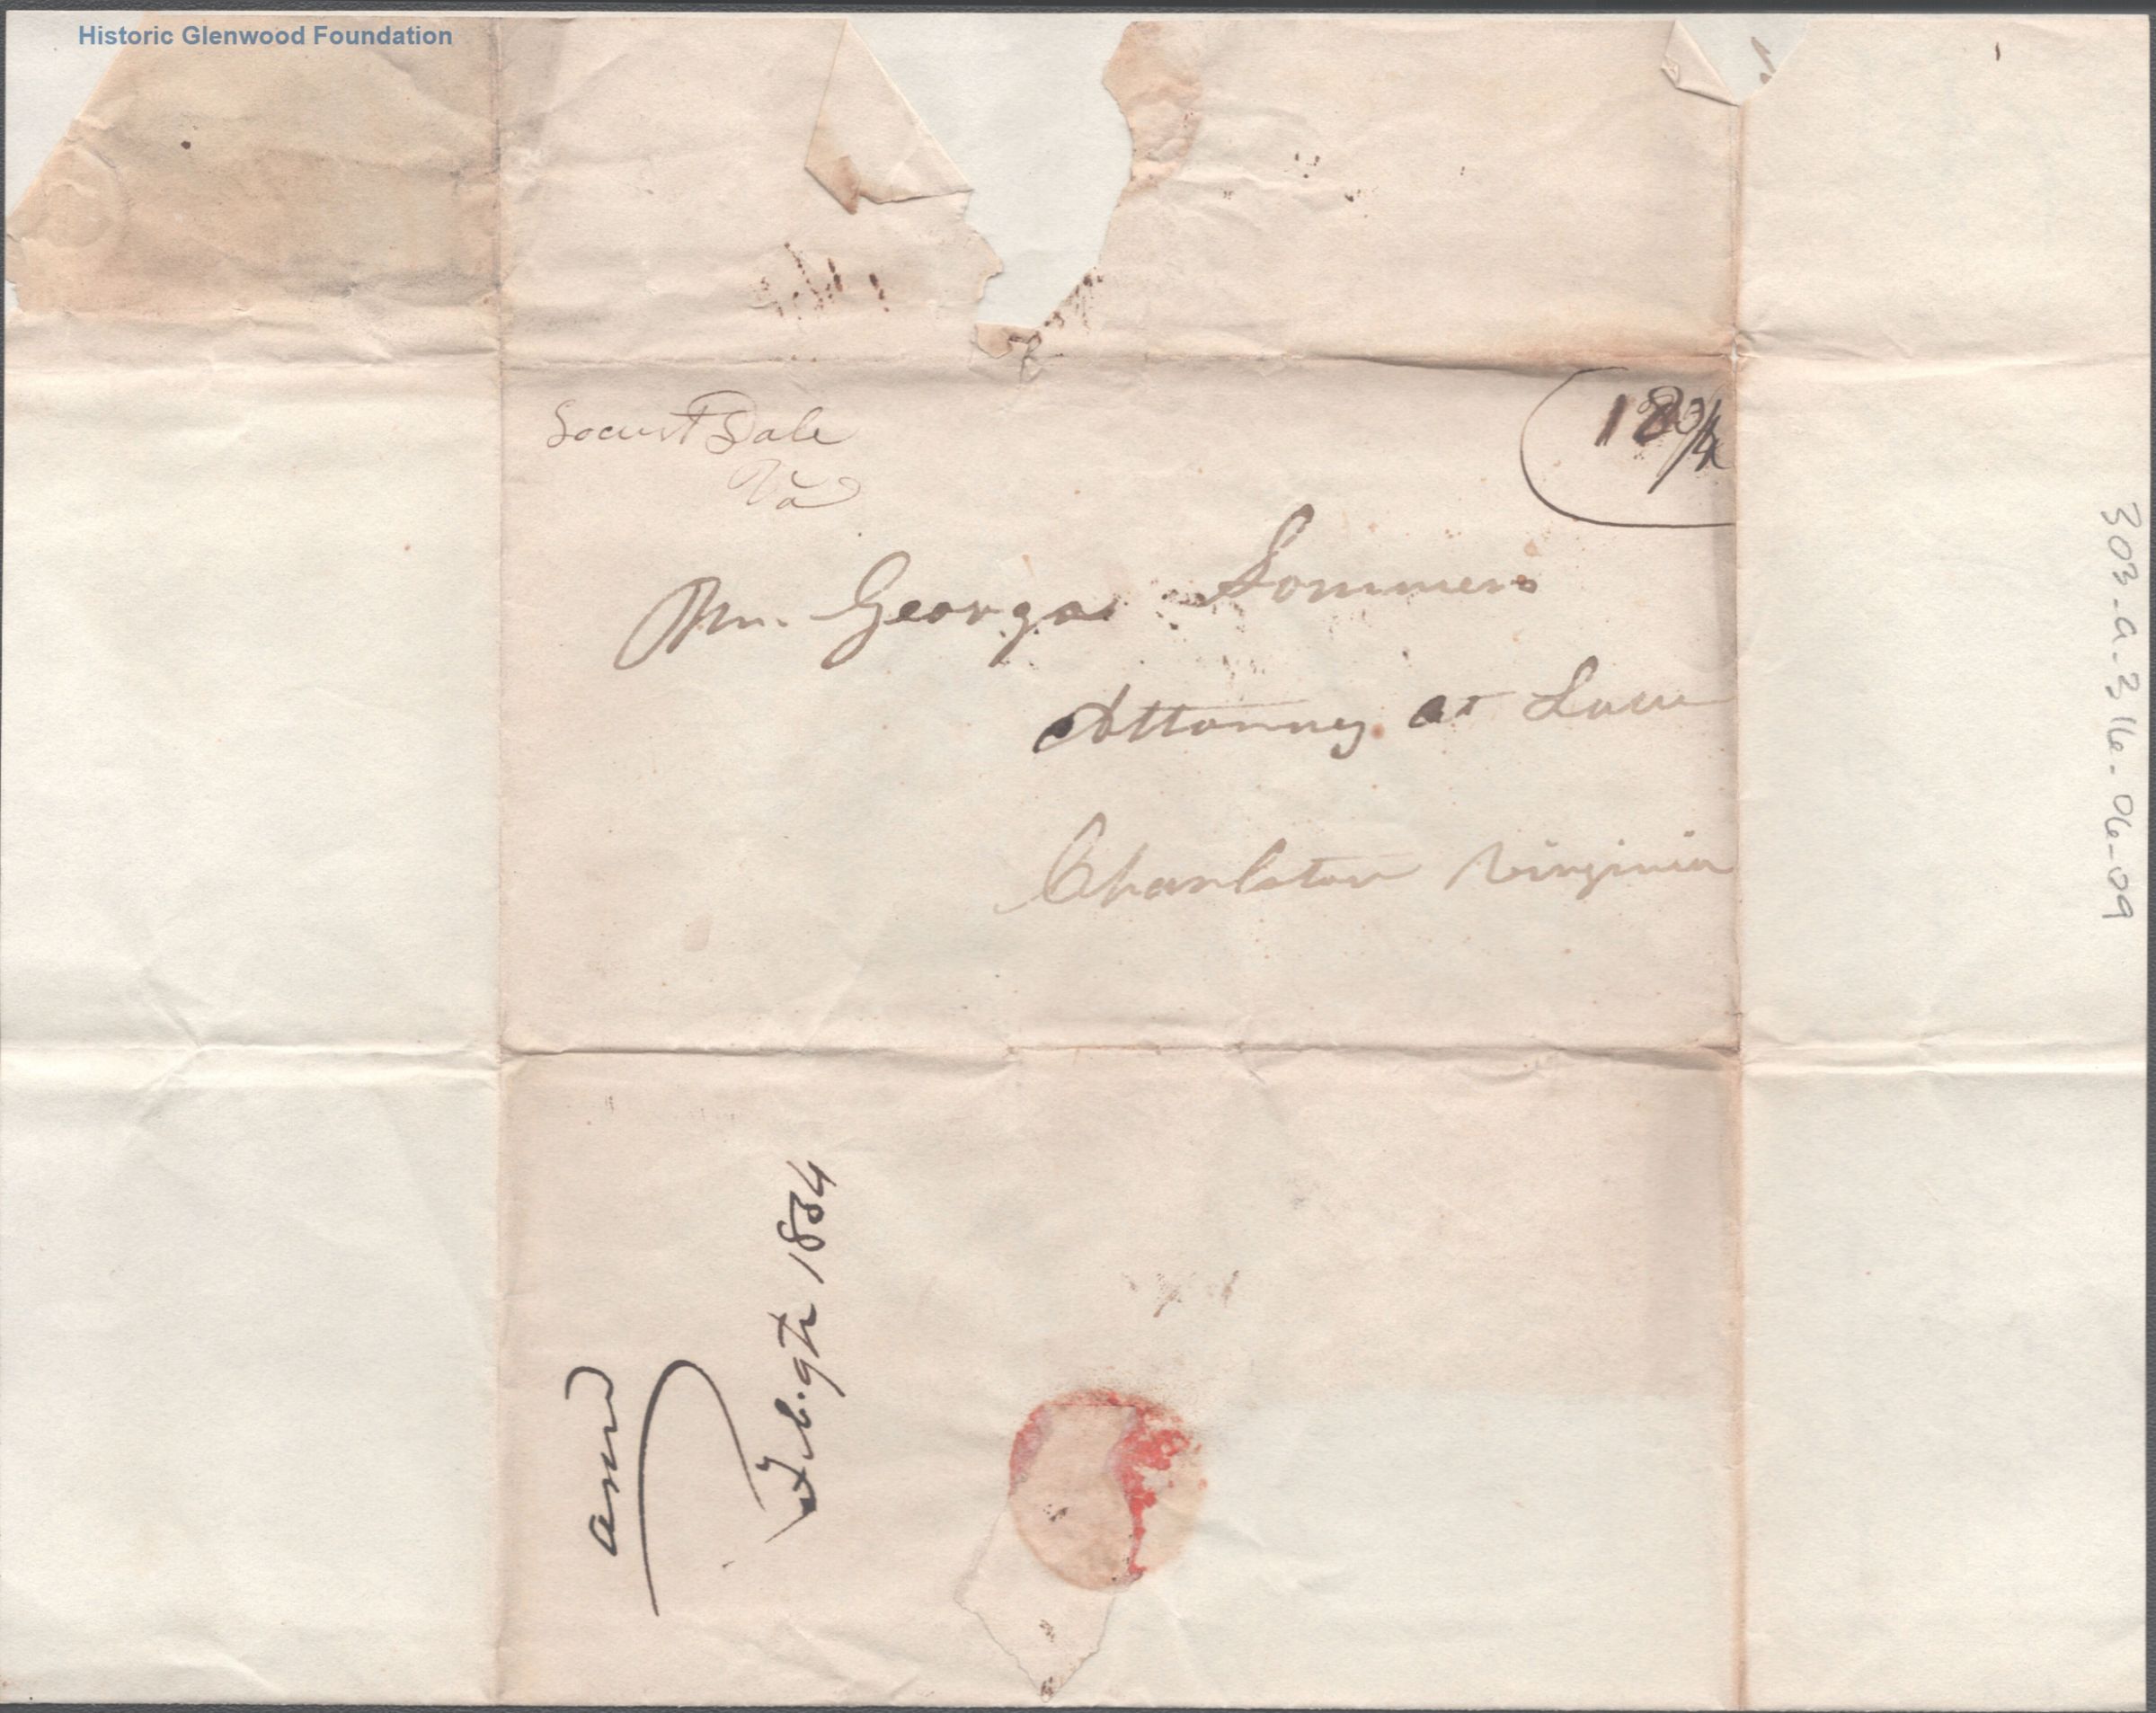 Historic Glenwood Foundation
Locust Dale
Va
18 3/4
Mr. George Sommers
Attorney at Law
Charlston Virginia
303-a.316-06-09
ansd
Feb. 9th 1834